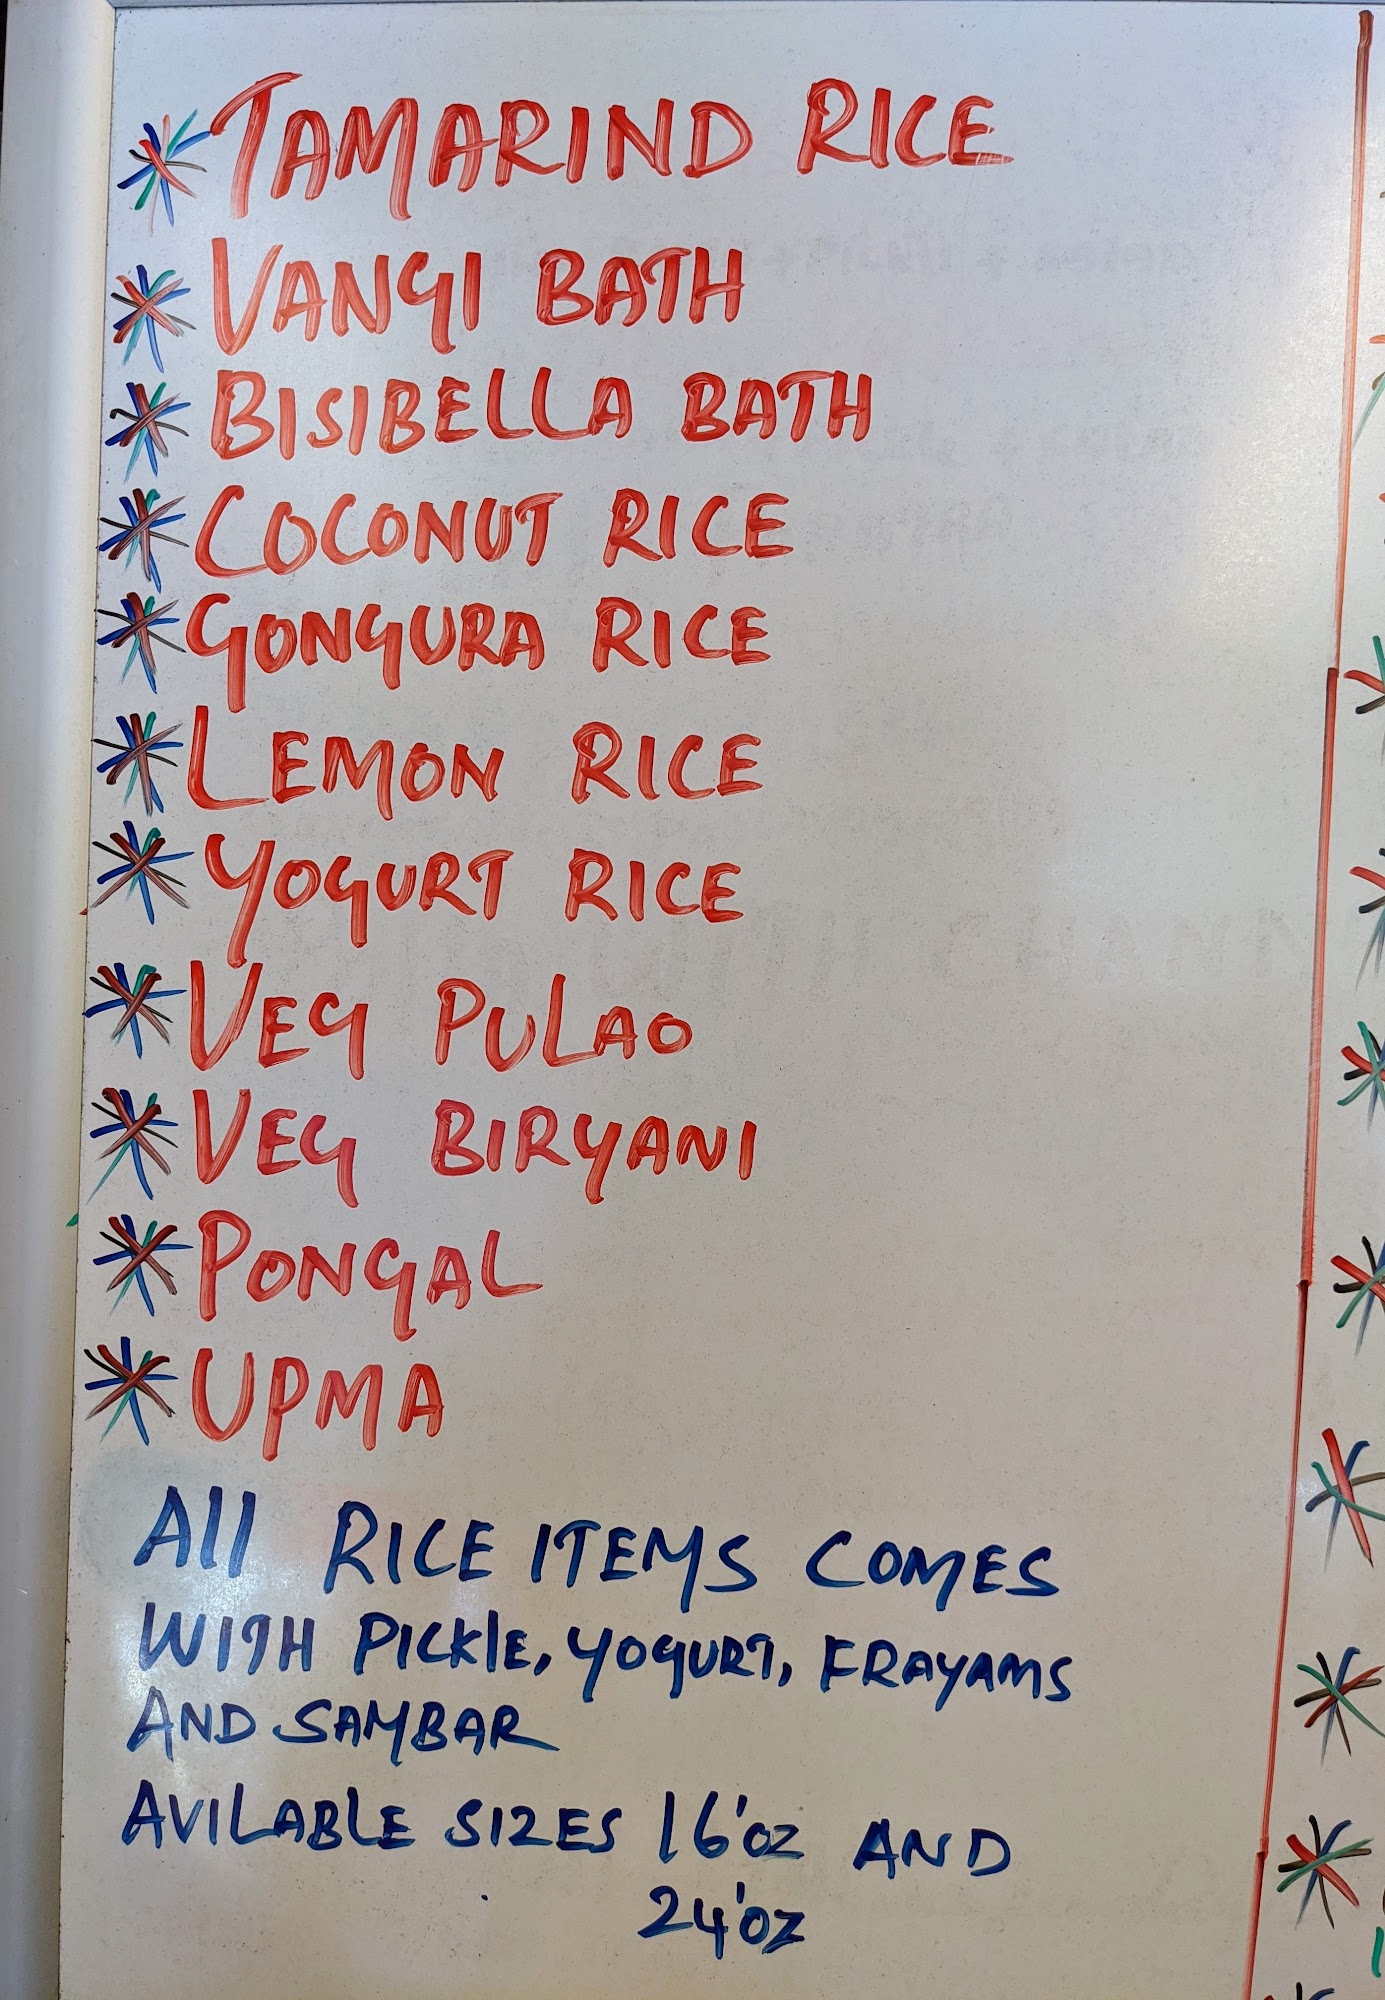 * TAMARIND RICE
* VANGI BATH
* BISIBELLA BATH
* COCONUT RICE
* GONGURA RICE
* LEMON RICE
* YOGURT RICE
* VEG PULAO
* VEG BIRYANI
* PONGAL
* UPMA
All RICE ITEMS COMES
WITH PICKlE, YOGURT, FRAYAMS
AND SAMBAR
AVILABLE SIZES 16'oz AND
24'oz